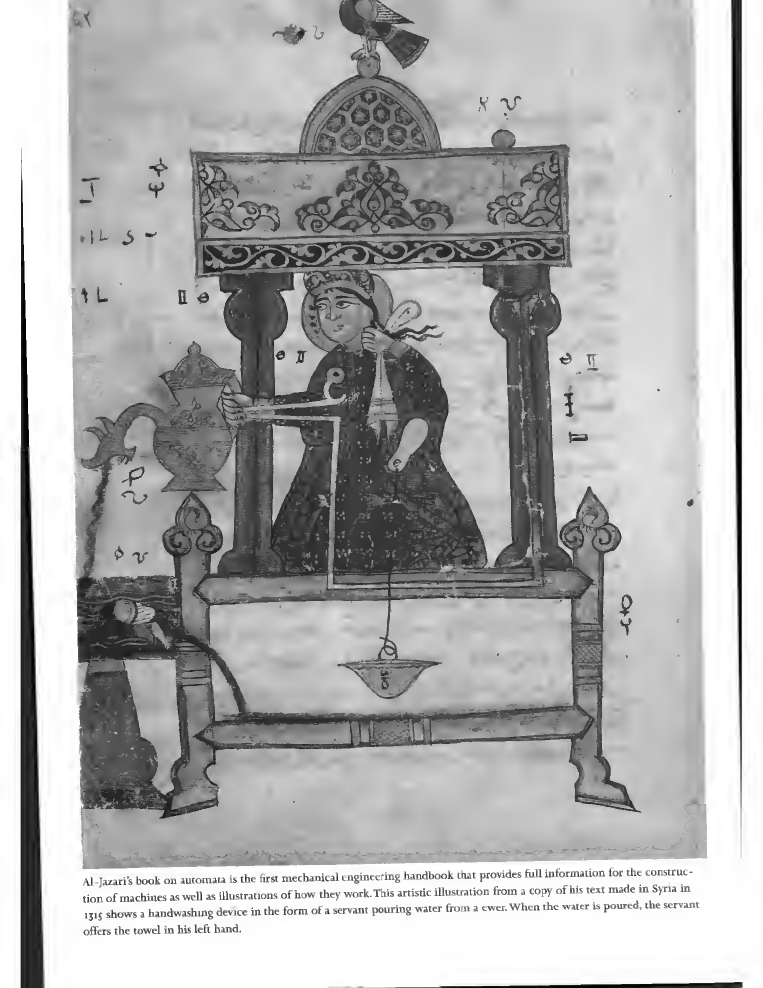 Al-Jazari's book on automata is the first mechanical engineering handbook that provides full information for the construc-
tion of machines as well as illustrations of how they work. This artistic illustration from a copy of his text made in Syria in
1315 shows a handwashing device in the form of a servant pouring water from a ewer. When the water is poured, the servant
offers the towel in his left hand.